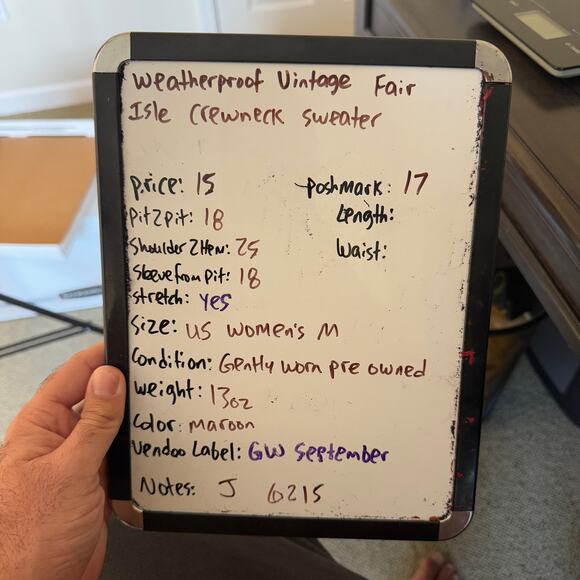 Weatherproof Vintage Fair
Isle Crewneck sweater
price: 15
poshmark: 17
Pit2pit: 18
Length:
Shoulder 2 Hem: 25
Waist:
Sleeve from Pit: 18
stretch: yes
Size: US women's M
Condition: Gently worn pre owned
weight: 13oz
Color: maroon
Vendoo Label: GW September
Notes: J 6215